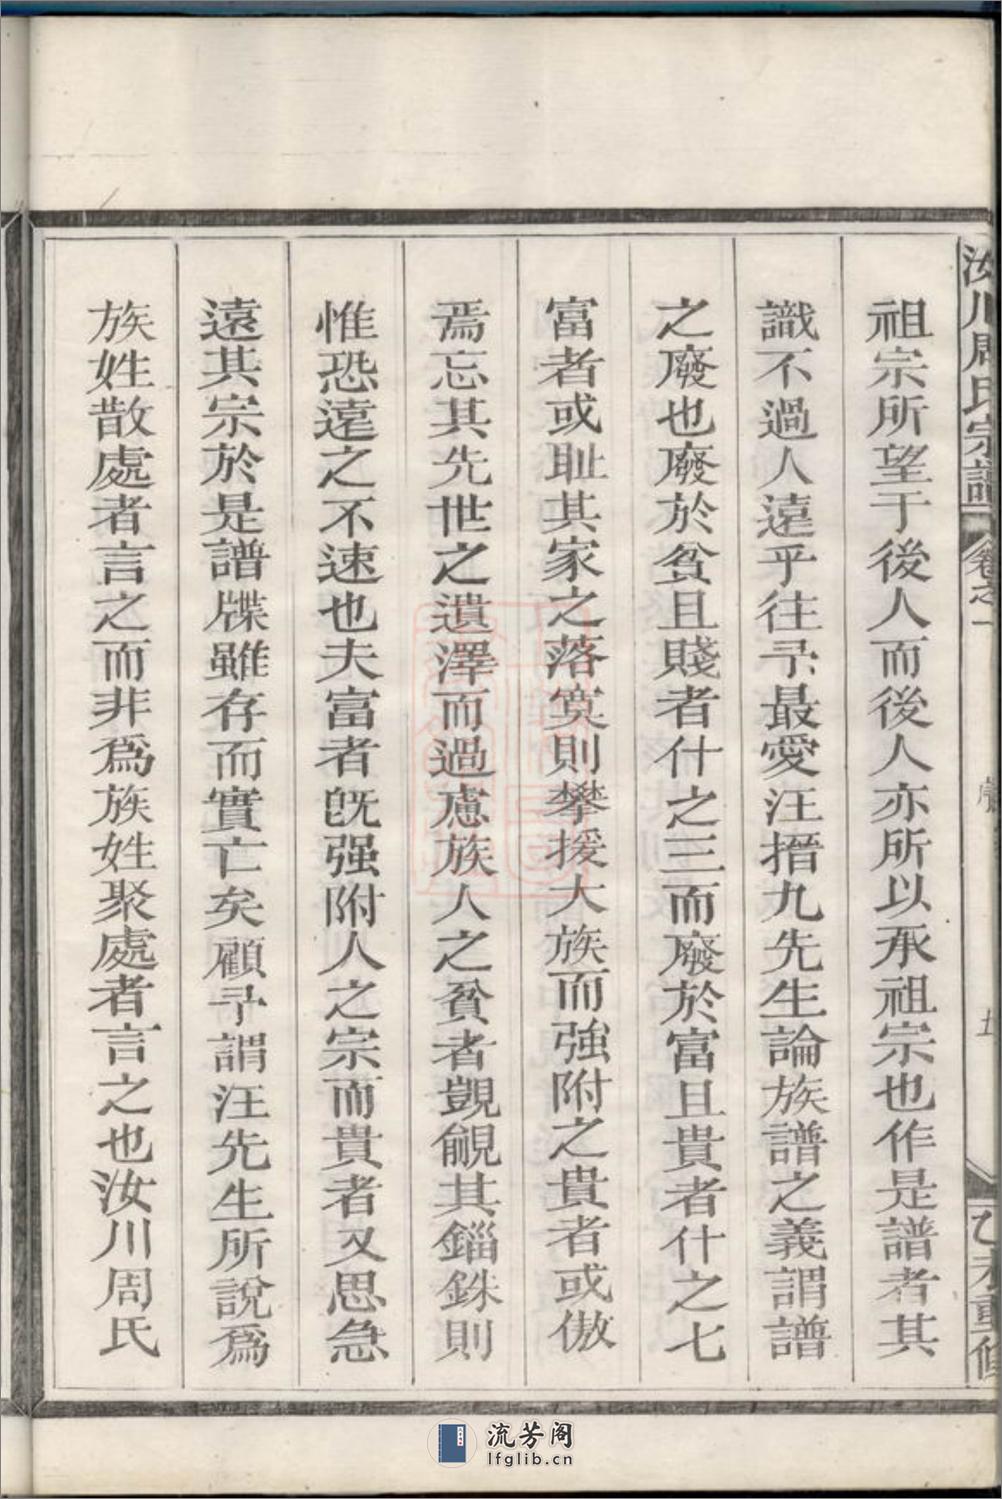 汝川周氏宗譜
卷之一
乙未重修
祖宗所望于後人而後人亦所以承祖宗也作是譜者其
識不過人遠乎往予最愛汪搢九先生論族譜之義謂譜
之廢也廢於貧且賤者什之三而廢於富且貴者什之七
富者或耻其家之落寞則攀援大族而強附之貴者或傲
焉忘其先世之遺澤而過慮族人之貧者覬覦其錙銖則
惟恐遠之不速也夫富者旣强附人之宗而貴者又思急
遠其宗於是譜牒雖存而實亡矣顧予謂汪先生所說爲
族姓散處者言之而非爲族姓聚處者言之也汝川周氏
流芳阁
lfglib.cn